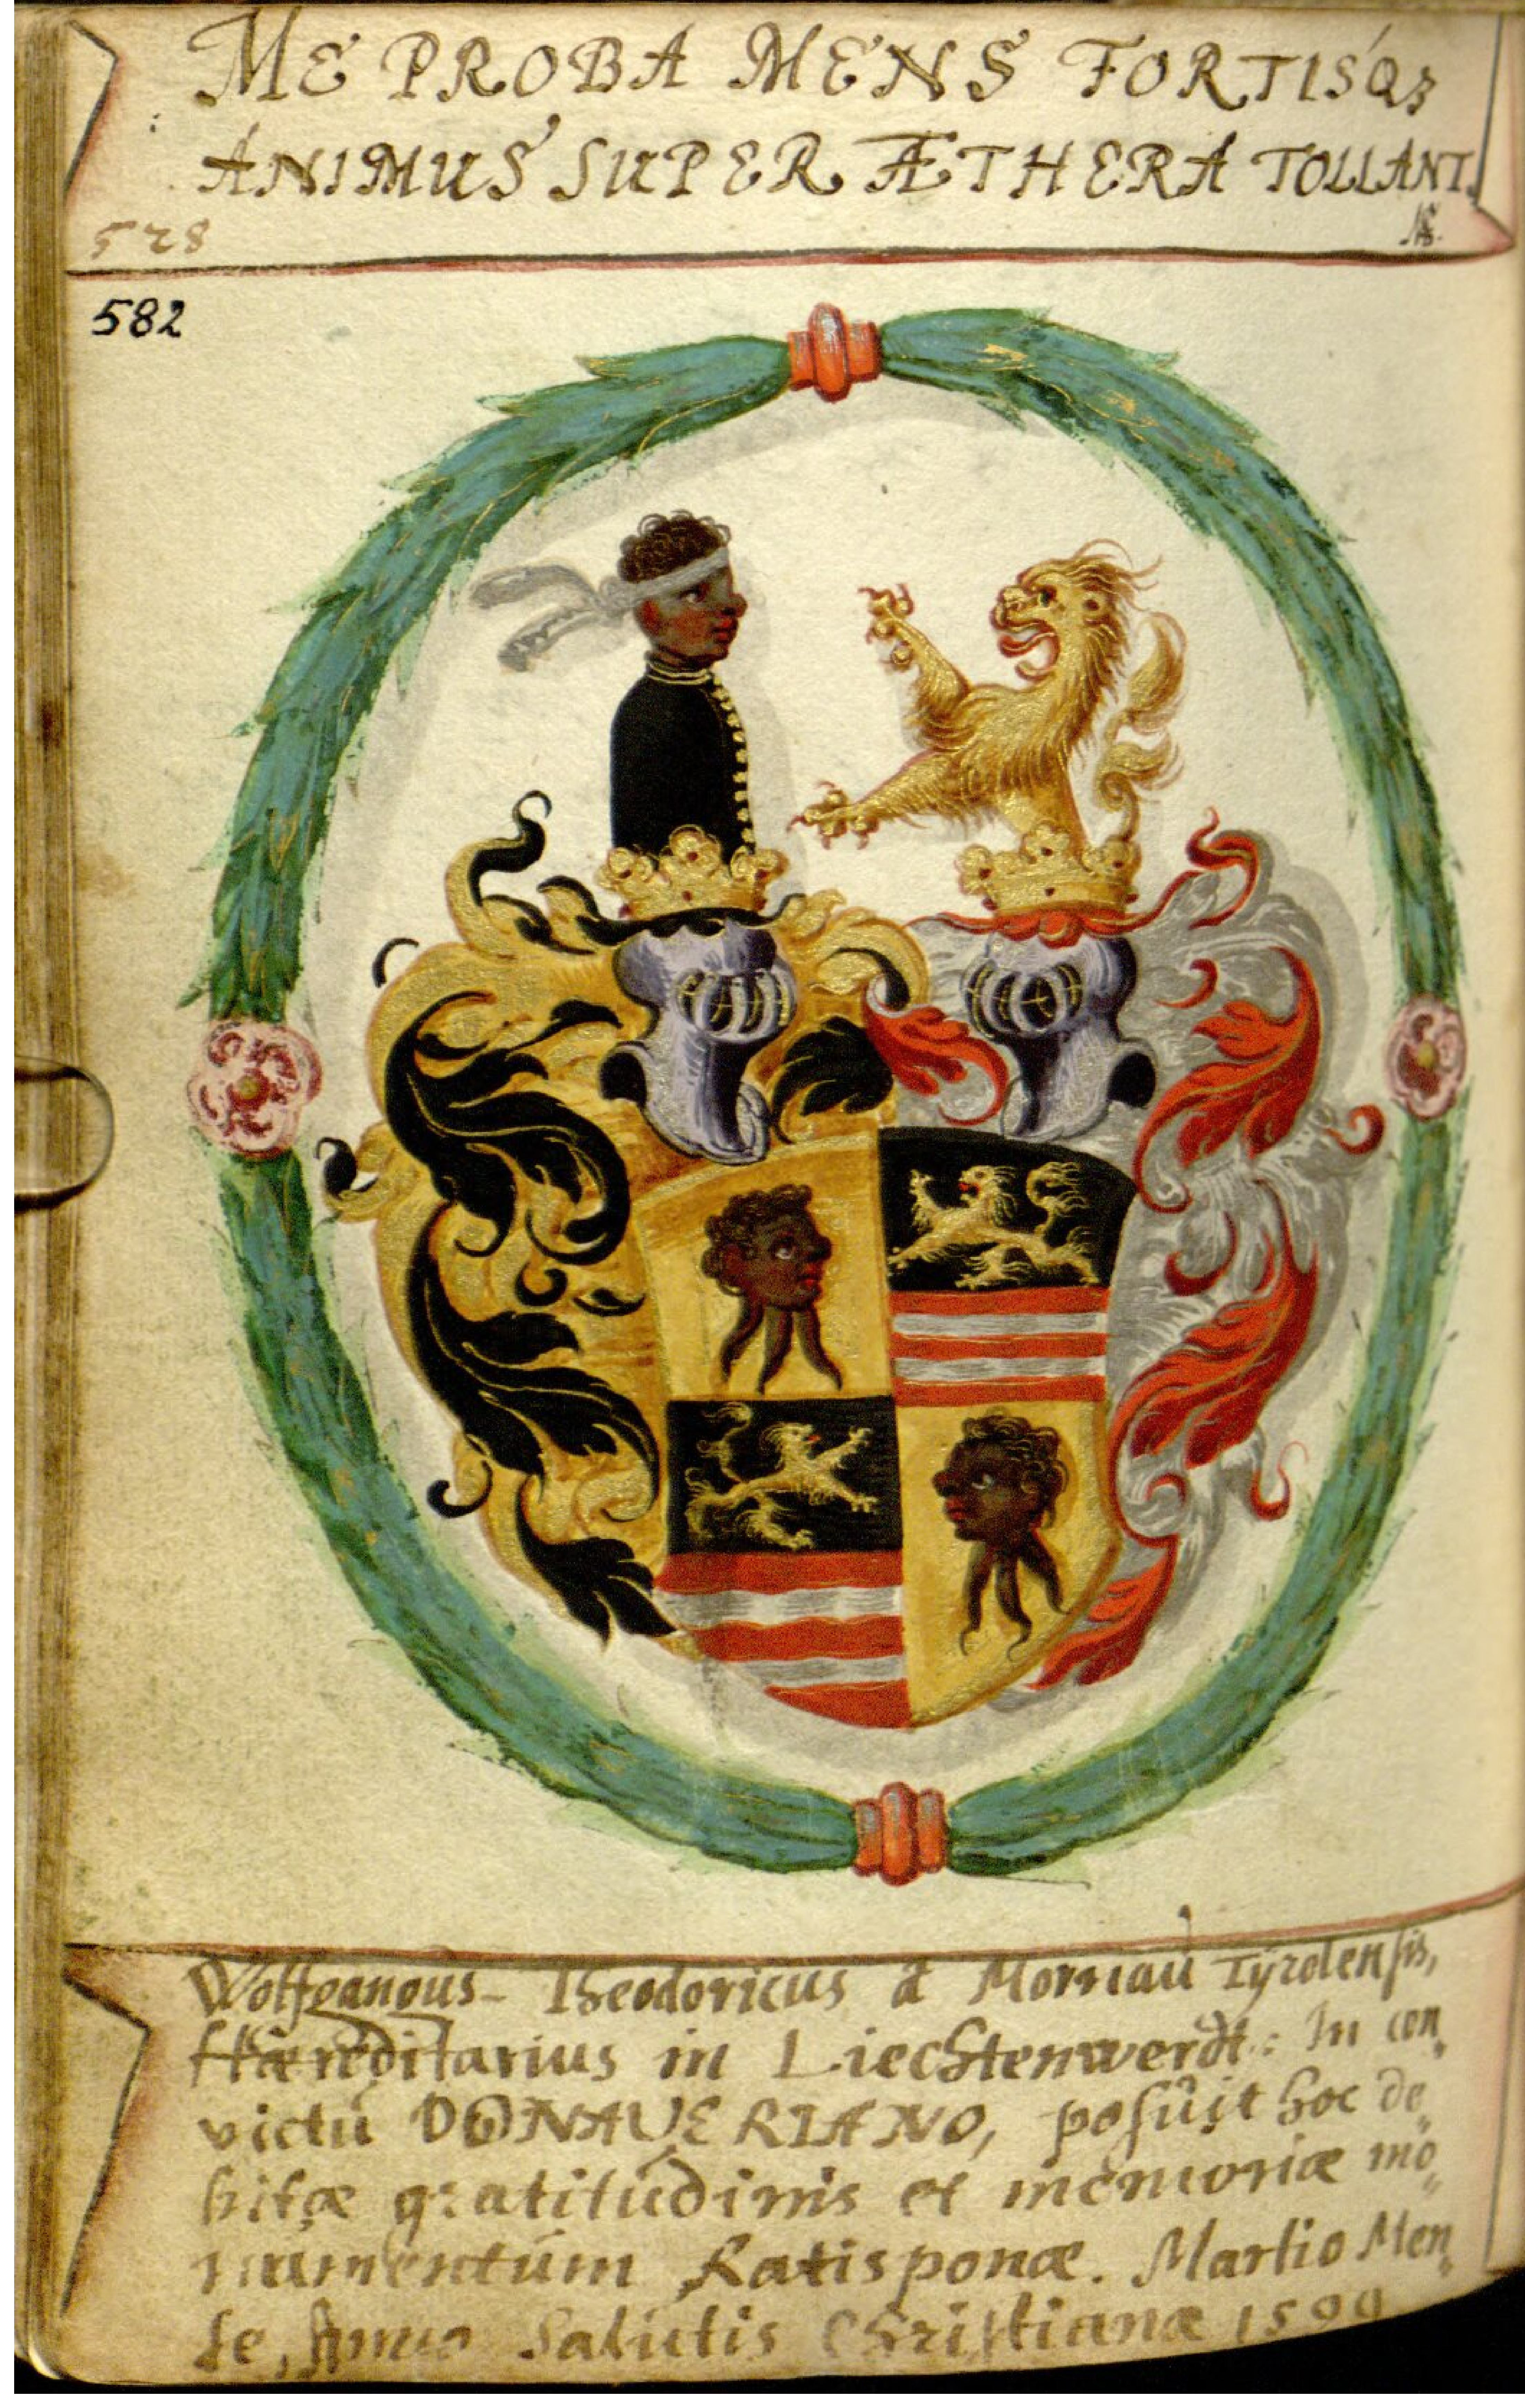 ME PROBA MENS FORTISQ3
ANIMUS SUPER ÆTHERA TOLLANT.
528
582
Wolfgangus Theodoricus â Mornau Tÿrolensis,
Hæreditarius in Liechtenwerdt: In con„
victu DONAVERIANO, posuit hoc de„
bitæ gratitudinis et memoriæ mo„
numentum Ratisponæ. Martio Men„
se, Anno Salutis Christianæ 1599